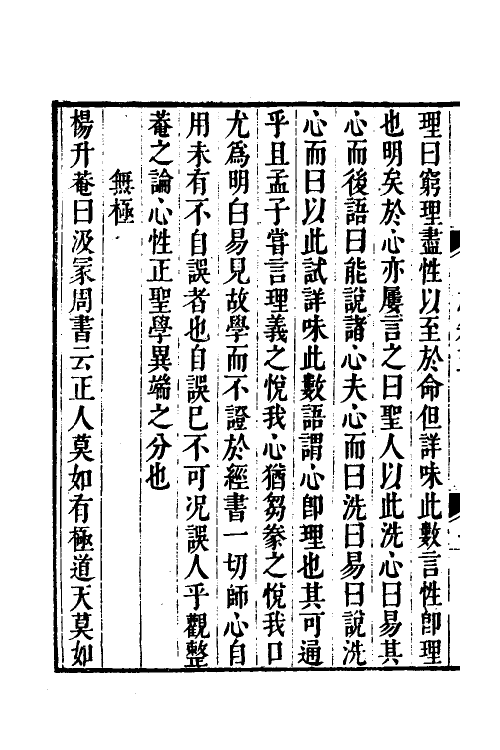 理曰窮理盡性以至於命但詳味此數言性卽理
也明矣於心亦屢言之曰聖人以此洗心曰易其
心而後語曰能說諸心夫心而曰洗曰易曰說洗
心而曰以此試詳味此數語謂心卽理也其可通
乎且孟子嘗言理義之悅我心猶芻豢之悅我口
尤爲明白易見故學而不證於經書一切師心自
用未有不自誤者也自誤已不可况誤人乎觀整
菴之論心性正聖學異端之分也
無極
楊升菴曰汲冢周書云正人莫如有極道天莫如